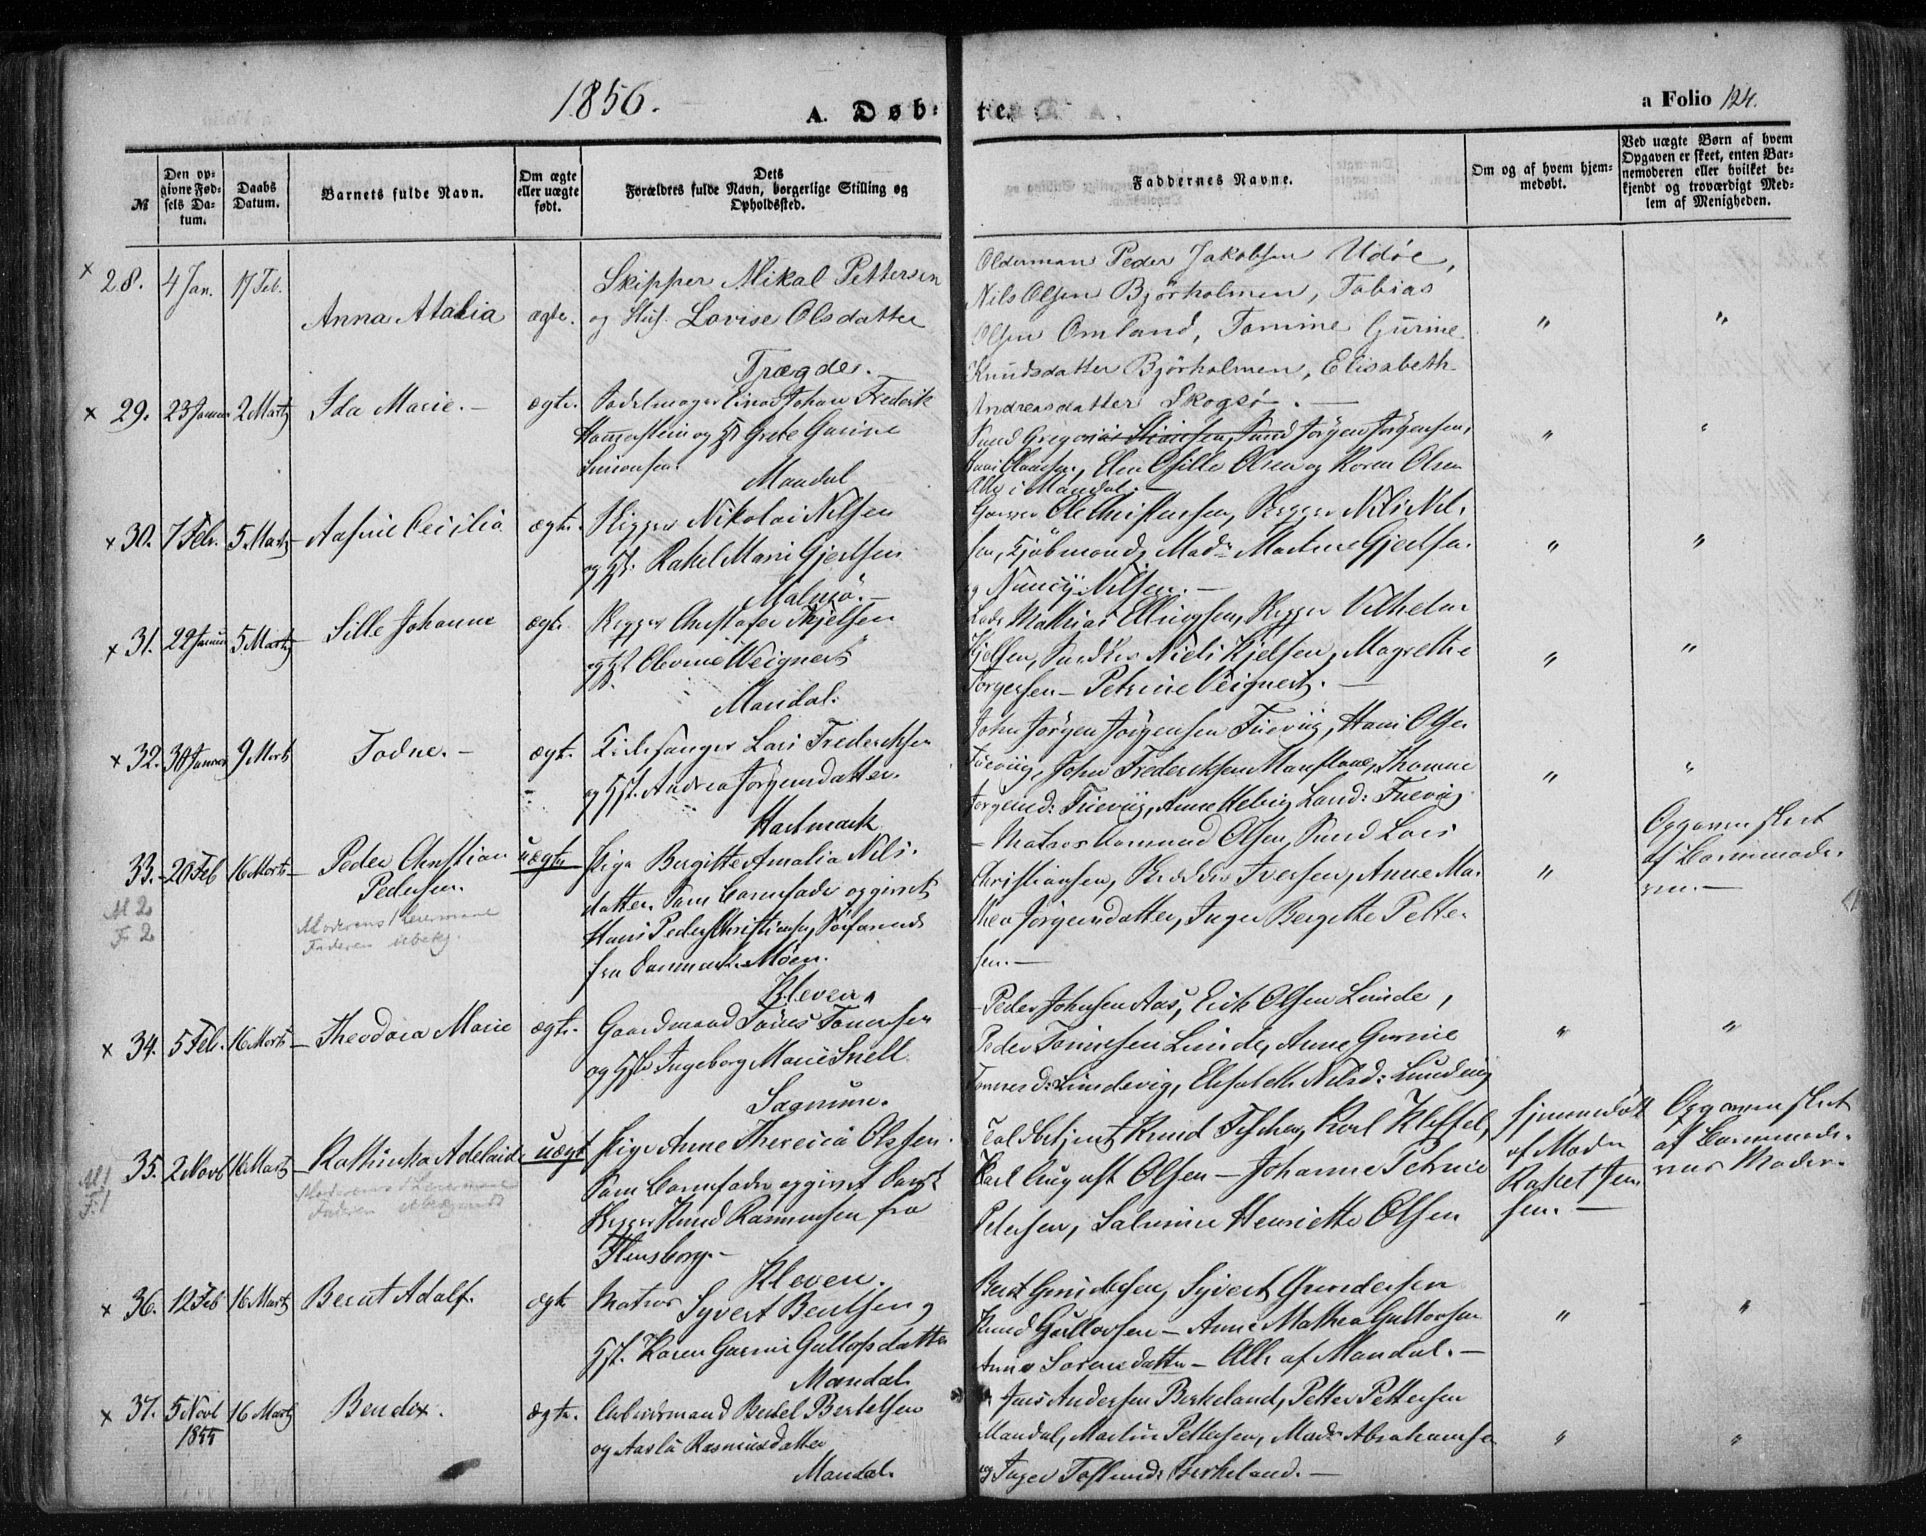 1856.
A. Døbte.
a Folio 124.
№
Den opgivne Fødsels Datum.
Daabs Datum.
Barnets fulde Navn.
Om ægte eller uægte født.
Dets Forældres fulde Navn, borgerlige Stilling og Opholdssted.
Faddernes Navne.
Om og af hvem hjemmedøbt.
Ved uægte Børn af hvem Opgaven er skeet, enten Barnemoderen eller hvilket bekjendt og troværdigt Medlem af Menigheden.
× 28. 4 Jan. 17 Feb. Anna Atalia ægte.
Skipper Mikal Pettersen
og Hus. Lovise Olsdatter
Trægde.
Olderman Peder Jakobsen Udøe,
Nils Olsen Bjørholmen, Tobias
Olsen Omland, Tomine Gurine
Knudsdatter Bjørholmen, Elisabeth
Andreasdatter Skogsø. —
" "
× 29. 23 Januar 2 Marts Ida Marie. — ægte.
Sadelmager Einar Johan Frederik
Hammerstein og H. Grete Gurine
Simonsen.
Mandal
Svend Gregorius Jørgen Jørgensen,
Hans Olausen, Elen Sille Olsen og Karen Olsen
Alle i Mandal. —
" "
× 30. 7 Feb. 5 Marts Aasine Cecilia ægte.
Skipper Nikolai Nilsen
og Hst. Rakel Marie Gjertsen
Malmø. —
Garver Ole Christensen, Skipper Nils Nil-
sen, Kjøbmands Mad: Martine Gjertsen
og Nancy Nilsen. —
" "
× 31. 22 Januar 5 Marts Sille Johanne ægte.
Skipper Christofer Kjelsen
og Hst Weignert
Mandal.
Lods Mathias Ellingsen, Skipper Vilhelm
Kjelsen, Niels Kjelsen, Magrethe
Torgersen — Petrine Veignert. —
" "
× 32. 30 Januar 9 Marts Todne. — ægte.
Lars Frederiksen
og Hst. Andrea Jørgensdatter.
Hartmark
John Jørgen Jørgensen Tuevig, Hans Olsen
Tuevig, John Frederiksen, Thomine
Jørgensd: Tuevig, Anne Helvig Land: Tuevig
" "
33. 20 Feb 16 Marts Peder Christian
Pedersen.
uægte
Pige Bergitte Amalia Nils-
datter. Som Barnefader opgivet
Hans Peder Christiansen, Søfarende
fra Danmark. Møen.
Kleven.
Matros Olsen, Svend Lars
Christiansen, Iversen, Anne Ma-
thea Jørgensdatter, Inger Bergette Petter-
sen. —
"
Opgaven skeet
af Barnemode-
ren. —
M 2
F 2
Moderens
Faderen ubekj.
× 34. 5 Feb. 16 Marts Theodora Marie ægte.
Gaardmand Tønes Tønnesen
og Hst Ingeborg Marie Snell
Sagmune.
Peder Johnsen Aas, Erik Olsen Lunde,
Peder Tønnesen Lunde, Anne Gurine
Tønnesd: Lundevig, Elisabeth Nilsd: Lundevig
" "
35. 2 Novb 16 Marts Kathinka Adelaide uægte
Pige Anne Theresia Olssen.
Som Barnefader opgivet Dansk
Skipper Knud Rasmussen fra
Flensborg. —
Kleven.
Toldbetjent Knud, Karl Kleffel,
Karl August Olsen — Johanne Petrine
Petersen, Salmine Henriette Olsen
Hjemmedøbt
af Madm
Raket Jen-
sen. —
Opgaven skeet
af Barnemode-
rens Moder.
M 1
F 1
Moderens
Faderen
× 36. 12 Feb 16 Marts Bernt Adolf. ægte
Matros Syvert Bentsen og
Hst. Karen Gurine Gullofsdatter
Mandal.
Bent Gundersen, Syvert Gundersen
Knud Gullovsen — Anne Mathea Gullovsen
Anne Sørensdatter — Alle af Mandal. —
" "
× 37. 5 Novb
1855
16 Marts Bendix. ægte.
Arbeidsmand Bertel Bertelsen
og Aaslu Rasmusdatter
Mandal.
Jens Andersen Birkeland, Petter Pettersen
Mandal, Martin Pettersen, Mad: Abrahamsen
og Inger Birkeland. —
" "